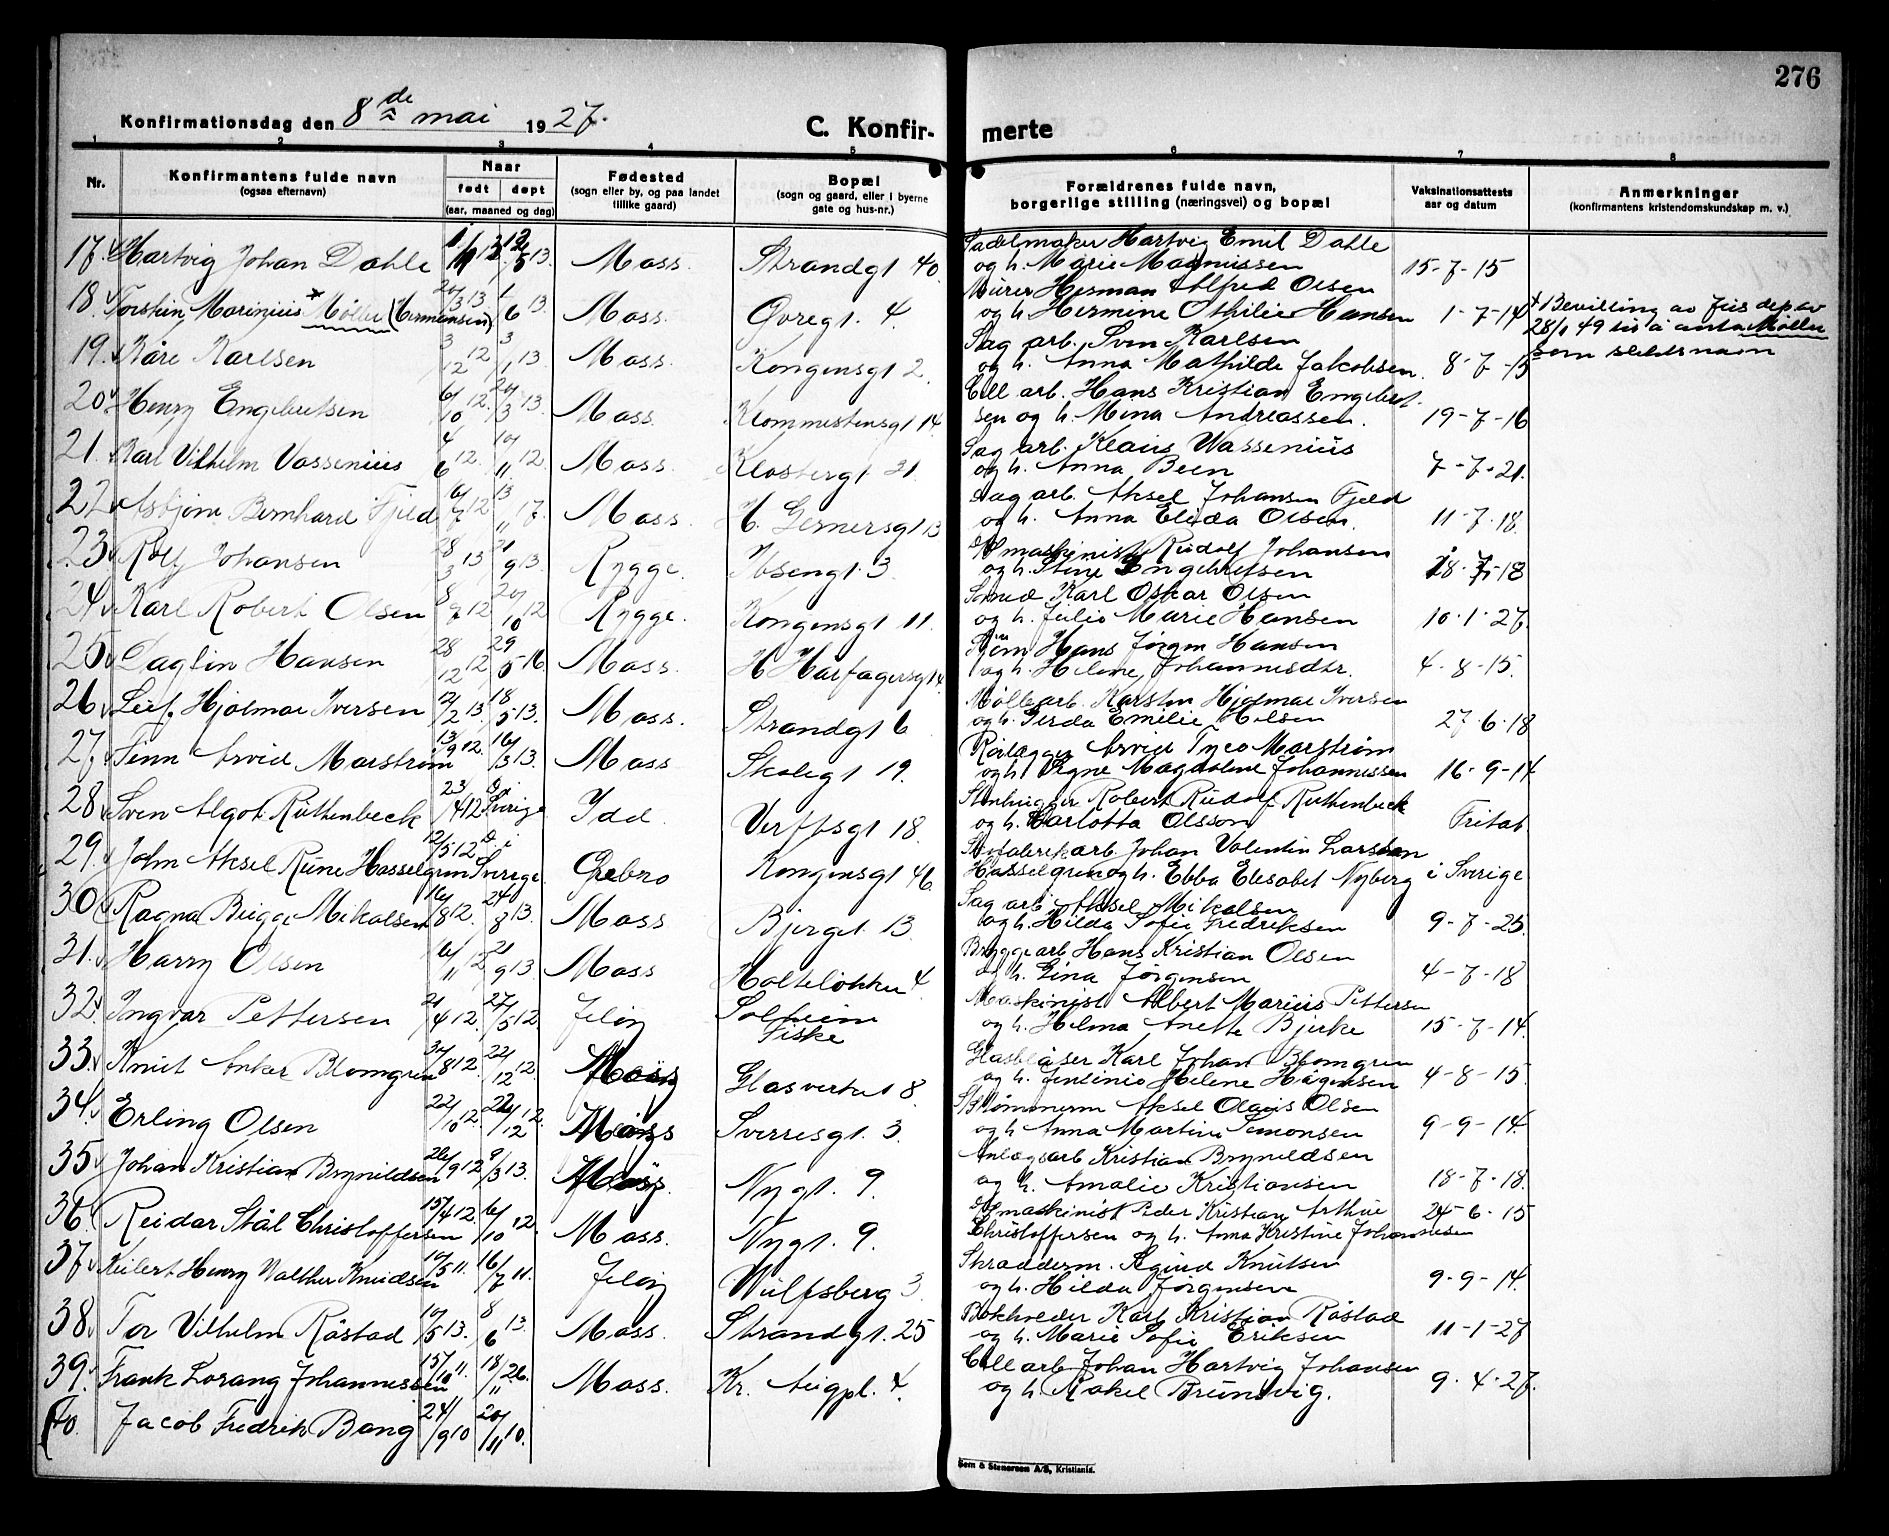 276
Konfirmationsdag den 8de mai 1927.
C. Konfir-merte
1 2 3 4 5 6 7 8
Nr.
Konfirmantens fulde navn
(ogsaa efternavn)
Naar
født døpt
(aar, maaned og dag)
Fødested
(sogn eller by, og paa landet
tillike gaard)
Bopæl
(sogn og gaard, eller i byerne
gate og hus-nr.)
Forældrenes fulde navn,
borgerlige stilling (næringsvei) og bopæl
Vaksinationsattests
aar og datum
Anmerkninger
(konfirmantens kristendomskundskap m. v.)
17. Hartvig Johan Dahle Moss. Strandgt 40. Sadelmaker Hartvig Emil Dahle
og h. Marie Magnussen 15-7-15
18. Torstein Marinius Møller (Hermansen) 20/3 13 1/6 13. Moss. Øvregt. 4. Murer Herman Alfred Olsen
og h. Hermine Othilie Hansen 1-7-14 Bevilling av Jus dep av
28/1 49 til å anta Møller
som slektsnavn
19. Kåre Karlsen 3/12 12 3/1 13 Moss. Kongensgt 2. Sag arb. Sven Karlsen
og h. Anna Mathilde Jakobsen. 8-7-15
20. Henry Engebretsen 6/10 12. 20/3 13. Moss. 14. Cell arb. Hans Kristian Engebret-
sen og h. Mina Andreassen. 19-7-16
21. Karl Vilhelm Vassenius 4/6 12. 10/11 12. Moss. Klostergt 21. Sag arb. Klaus Wassenius
og h. Anna Been 7-7-21.
22. Asbjørn Bernhard Fjeld 6/7 12 13/11 17. Moss. H. Gernersgt 13 Sag arb. Aksel Johansen Fjeld
og h. Anna Elida Olsen. 11-7-18.
23. Rolf Johansen 28/3 13 21/9 13. Rygge. Ibsengt. 3. maskinist Rudolf Johansen
og h. Stine Engebretsen 18-7-18
24. Karl Robert Olsen 8/7 12 20/10 12 Rygge. Kongensgt 11. Smed Karl Oskar Olsen
og h. Julie Marie Hansen 10-1-27.
25. Daglin Hansen 28/12 12 29/5 16. Moss. H Harfagersgt Hans Jørgen Hansen
og h. Helene Johannesdtr. 4-8-15.
26. Leif Hjalmar Iversen 12/2 13. 18/5 13. Moss. Strandgt 6 Møllearb. Karsten Hjalmar Iversen
og h. Gerda Emilie Nilsen 27-6-18
27. Finn Arvid Marstrøm 13/9 12. 16/3 13. Moss Skolegt 19. Rørlægger Arvid Tyco Marstrøm
og h. Signe Magdalene Johannessen 16-9-14.
28. Sven Algot Ruthenbeck 23/4 12 D. i Sverige Idd. Verftsgt 18. Stenhugger Robert Rudolf Ruthenbeck
og h. Charlotta Olsson Fritat
29. John Aksel Rune Hasselgren 12/5 12 D i Sverige. Ørebro Kongensgt 46. Johan Valentin Larsson
Hasselgren og h. Ebba Elisabet Nyberg i Sverige
30. Ragna Bugge Mikalsen 16/8 12. 24/8 13. Moss Bjergt 13. Sag arb. Aksel Mikalsen
og h. Hilda Sofie Fredriksen 9-7-25.
31. Harry Olsen 6/11 12 21/9 13 Moss Holteløkken 4. Bryggearb Hans Kristian Olsen
og h. Gina Jørgensen 4-7-18
32. Ingvar Pettersen 21/4 12. 27/5 12. Jeløy Solheim
Fiske Maskinist Albert Marius Pettersen
og h. Helma Anette Bjerke 15-7-14.
33. Knut Anker Blomgren 8 12. 22/12 12. Glasverket 8. Glasblåser Karl Johan Blomgren
og h. Jentinie Helene Hågensen 4-8-15.
34. Erling Olsen 22/10 12. 22/12 12. Sverresgt. 3. Aksel Olaus Olsen
og h Anna Martine Simonsen 9-9-14.
35. Johan Kristian Brynildsen 26/9 12 9/3 13. Nygt. 9. Anlægsarb Kristian Brynildsen
og h. Amalie Kristiansen 18-7-18.
36. Reidar Stål Christoffersen 15/4 12. 6/10 12. Moss. Nygt. 9. maskinist Peder Kristian Arthur
Christoffersen og h. Anna Kristine Johannesen 24-6-15
37. Keilert Henry Valther Knudsen 10/5 11. 16/7 11. Jeløy Wulfsberg 3. Skrædderm. Sigurd Knutsen
og h. Hilda Jørgensen 9-9-14.
38. Tor Vilhelm Råstad 10/5 13. 8/6 13 Moss. Strandgt. 25 Bokholder Karl Kristian Råstad
og h. Marie Sofie Eriksen 11-1-27
39. Frank Lorang Johannessen 15/10 11. 18/11 26. Moss. Kr. Augpl. 4. Cell arb Johan Hartvig Johansen
og h Rakel Brunsvig. 9.4.27.
40. Jacob Fredrik Bang 24/9 10 20/11 10.
Sem & Stenersen A/S, Kristiania.